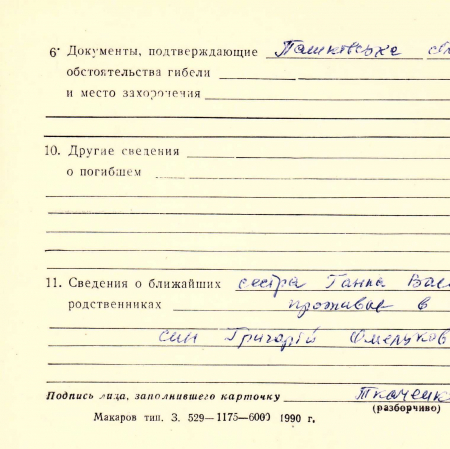 6. Документы, подтверждающие
обстоятельства гибели
и место захоронения
10. Другие сведения
о погибшем
11. Сведения о ближайших сестра Ганна Вас
родственниках проживає в
син Григорій
Подпись лица, заполнившего карточку Ткаченк
(разборчиво)
Макаров тип. З. 529—1175—6000 1990 г.